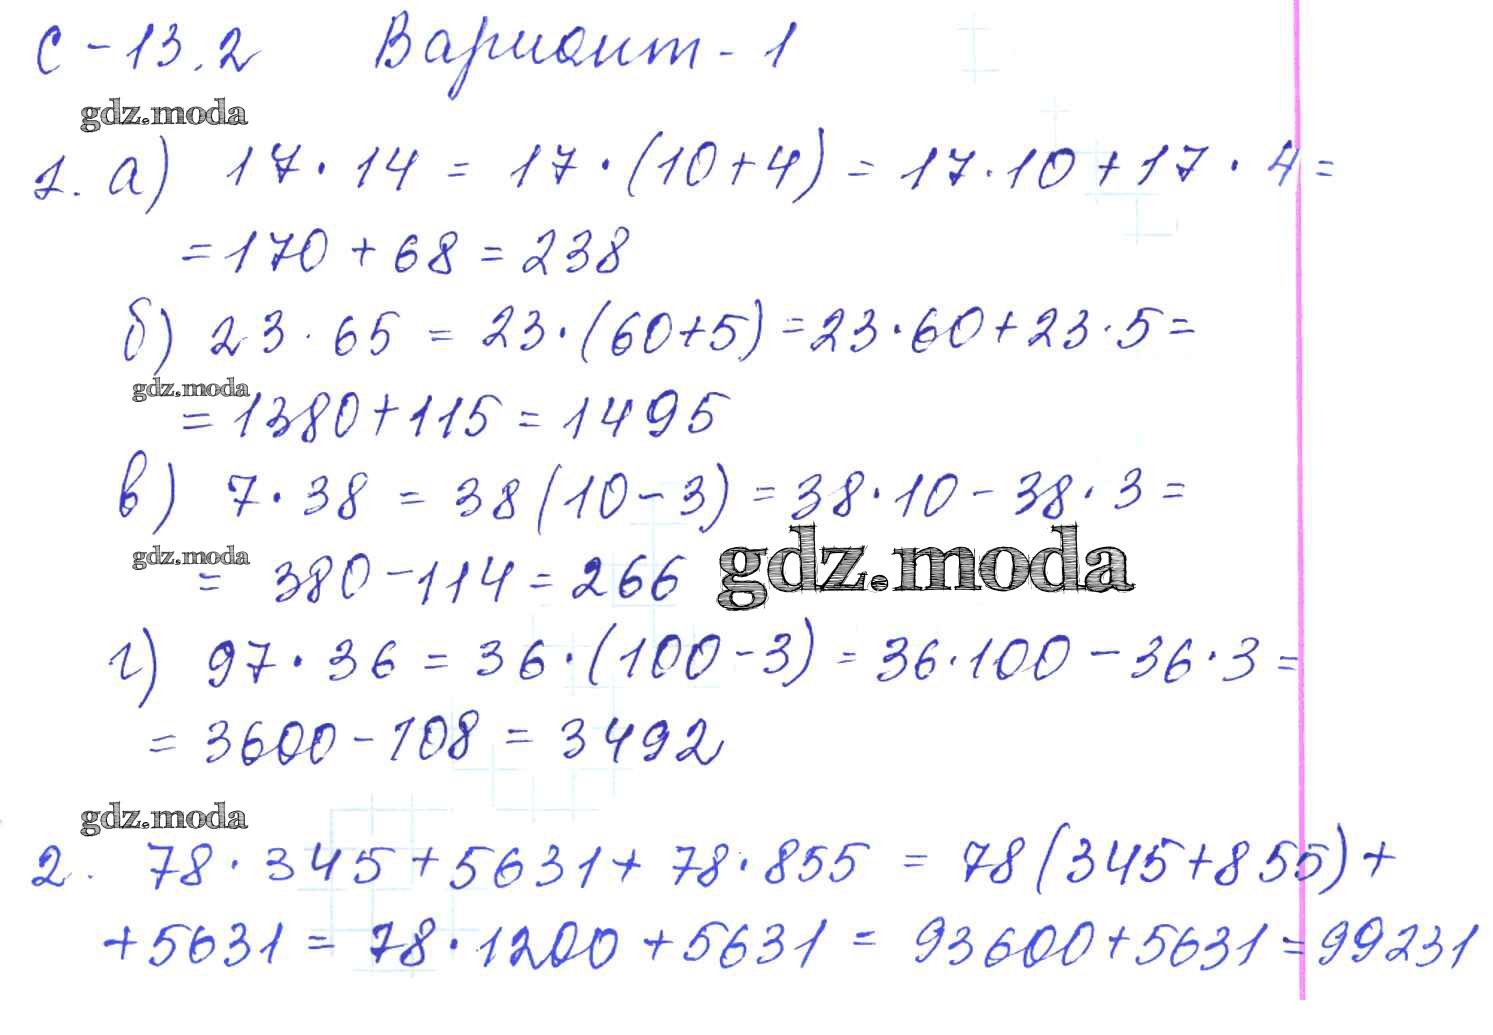 С - 13.2 Вариант - 1
gdz.moda
1. а) 17 · 14 = 17 · (10 + 4) = 17 · 10 + 17 · 4 =
= 170 + 68 = 238
б) 23 · 65 = 23 · (60 + 5) = 23 · 60 + 23 · 5 =
gdz.moda
= 1380 + 115 = 1495
в) 7 · 38 = 38 (10 - 3) = 38 · 10 - 38 · 3 =
gdz.moda
= 380 - 114 = 266
gdz.moda
г) 97 · 36 = 36 · (100 - 3) = 36 · 100 - 36 · 3 =
= 3600 - 108 = 3492
gdz.moda
2. 78 · 345 + 5631 + 78 · 855 = 78 (345 + 855) +
+ 5631 = 78 · 1200 + 5631 = 93600 + 5631 = 99231